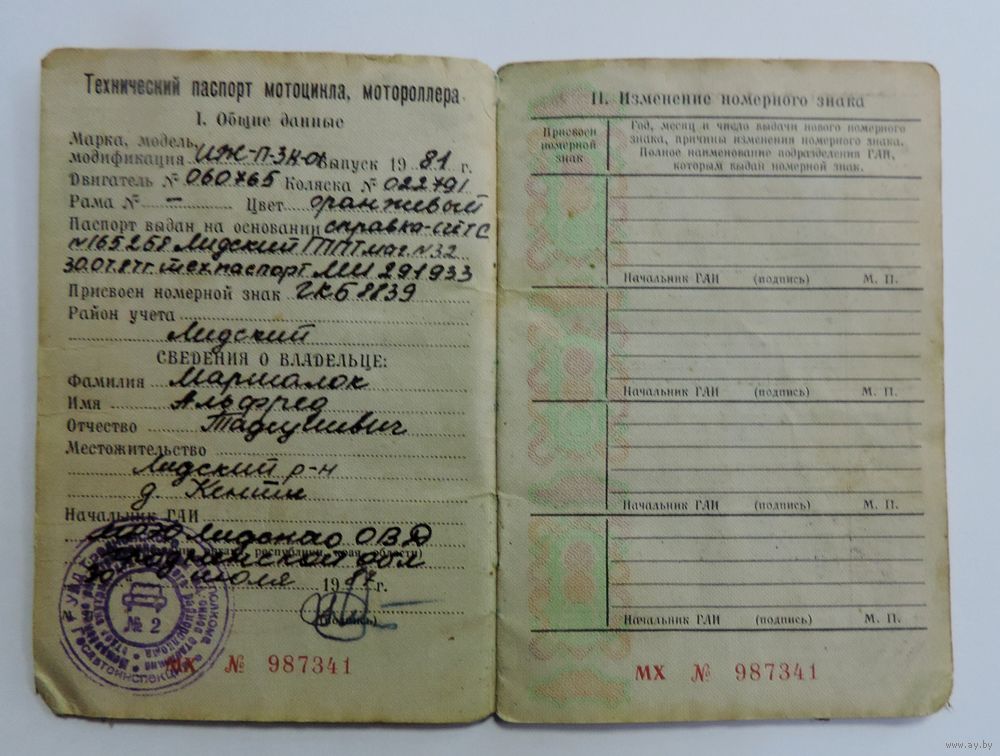 Технический паспорт мотоцикла, мотороллера
I. Общие данные
Марка, модель,
модификация ИЖ-П-3К-01 Выпуск 1981 г.
Двигатель № 060765 Коляска № 022791
Рама № – Цвет оранживый
Паспорт выдан на основании справка-счёт С
№165268 Лидский ППТ маг. №32
30.07.87г. тех.паспорт МИ 291933
Присвоен номерной знак ГКБ8839
Район учета
Лидский
СВЕДЕНИЯ О ВЛАДЕЛЬЦЕ:
Фамилия Маршалок
Имя Альфред
Отчество Тадеушевич
Местожительство
Лидский р-н
д. Кенти
Начальник ГАИ
Лидского ОВД
Гродненской обл
30 июля 1987 г.
(подпись)
№ 2
МХ № 987341
II. Изменение номерного знака
Присвоен
номерной
знак
Год, месяц и число выдачи нового номерного
знака, причины изменения номерного знака.
Полное наименование подразделения ГАИ,
которым выдан номерной знак.
Начальник ГАИ (подпись) М. П.
Начальник ГАИ (подпись) М. П.
Начальник ГАИ (подпись) М. П.
Начальник ГАИ (подпись) М. П.
МХ № 987341
www.ay.by